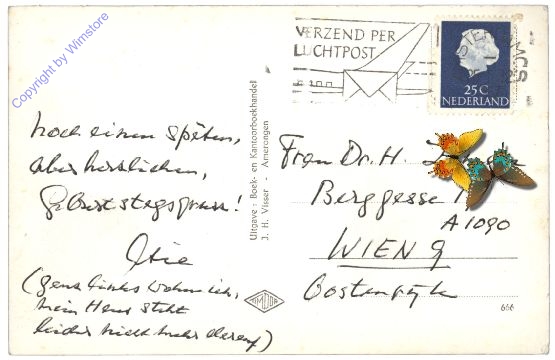 Copyright by Wimstore
VERZEND PER
LUCHTPOST
25 C
NEDERLAND
Noch einen späten,
aber herzlichen,
Geburtstagsgruss!
(Ganz links wohne ich,
mein Haus steht
leider nicht mehr darauf)
Uitgave: Boek- en Kantoorboekhandel
J. H. Visser - Amerongen
Frau Dr. H.
Berggasse
A 1090
WIEN 9
Oostenryk
666